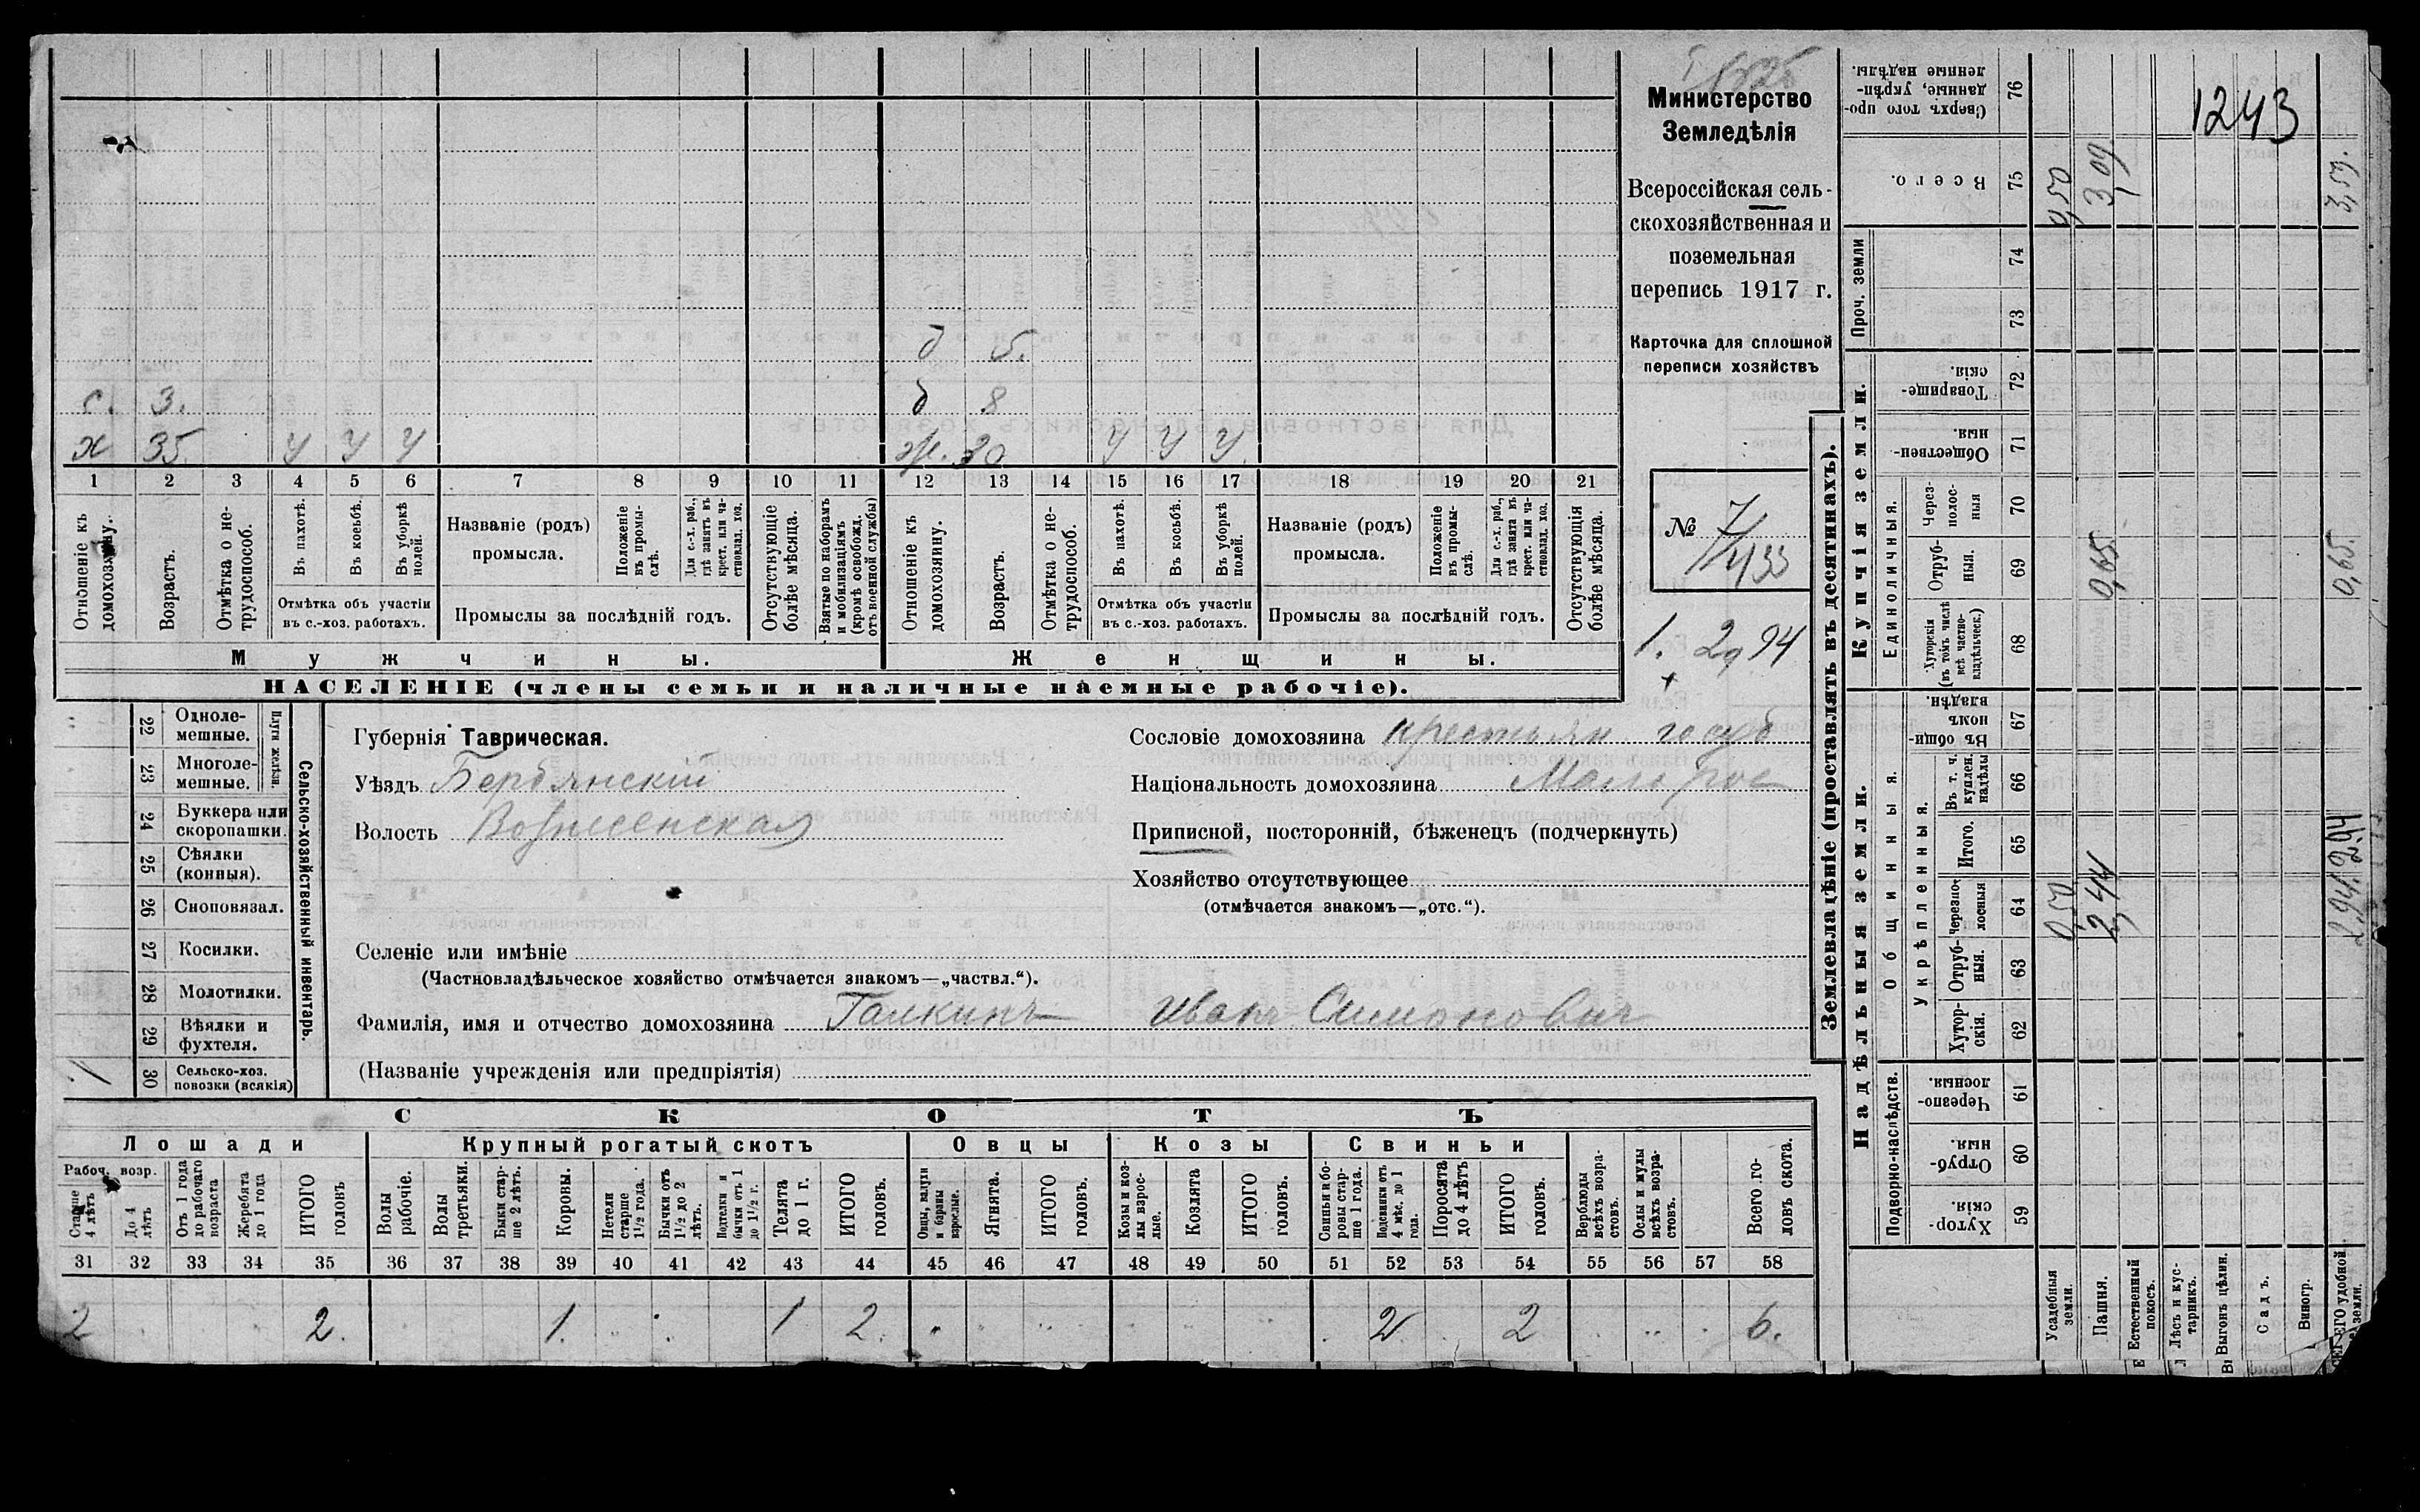 б 5.
с. 3. б 8
х 35. У У У ж. 30 У У У.
1 2 3 4 5 6 7 8 9 10 11 12 13 14 15 16 17 18 19 20 21
Отношеніе къ домохозяину.
Возрастъ.
Отмѣтка о не-
трудоспособ.
Въ пахотѣ.
Въ косьбѣ.
Въ уборкѣ
полей.
Отмѣтка объ участіи
въ с.-хоз. работахъ.
Названіе (родъ)
промысла.
Положеніе
въ промы-
слѣ.
Для с.-х. раб.,
гдѣ занятъ въ
крест. или ча-
стновлад. хоз.
Промыслы за послѣдній годъ.
Отсутствующіе
болѣе мѣсяца.
Взятые по наборамъ
и мобилизаціямъ
(кромѣ освобожд.
отъ военной службы)
Отношеніе къ
домохозяину.
Возрастъ.
Отмѣтка о не-
трудоспособ.
Въ пахотѣ.
Въ косьбѣ.
Въ уборкѣ
полей.
Отмѣтка объ участіи
въ с.-хоз. работахъ.
Названіе (родъ)
промысла.
Положеніе
въ промы-
слѣ.
Для с.-х. раб.,
гдѣ занята въ
крест. или ча-
стновлад. хоз.
Промыслы за послѣдній годъ.
Отсутствующія
болѣе мѣсяца.
Мужчины.
Женщины.
НАСЕЛЕНІЕ (члены семьи и наличные наемные рабочіе).
Министерство
Земледѣлія
Всероссійская сель-
скохозяйственная и
поземельная
перепись 1917 г.
Карточка для сплошной
переписи хозяйствъ
№ 7/433
1. 2,94
+
22 Одноле-
мешные.
23 Многоле-
мешные.
Плуги желѣзн.
24 Буккера или
скоропашки.
25 Сѣялки
(конныя).
26 Сноповязал.
27 Косилки.
28 Молотилки.
29 Вѣялки и
фухтеля.
1 30 Сельско-хоз.
повозки (всякія)
Сельско-хозяйственный инвентарь.
Губернія Таврическая.
Уѣздъ Бердянскій
Волость Вознесенская
Сословіе домохозяина крестьян. госуд
Національность домохозяина Мало рос
Приписной, посторонній, бѣженецъ (подчеркнуть)
Хозяйство отсутствующее
(отмѣчается знакомъ—„отс.“).
Селеніе или имѣніе
(Частновладѣльческое хозяйство отмѣчается знакомъ—„частвл.“).
Фамилія, имя и отчество домохозяина Галкинъ Иванъ Симоновичъ
(Названіе учрежденія или предпріятія)
СКОТЪ
Лошади
Крупный рогатый скотъ
Овцы
Козы
Свиньи
Рабоч. возр.
Старше
4 лѣтъ
До 4
лѣтъ
Отъ 1 года
до рабочаго
возраста
Жеребята
до 1 года
ИТОГО
головъ
Волы
рабочіе.
Волы
третьяки.
Быки стар-
ше 2 лѣтъ.
Коровы.
Нетели
старше
1½ года.
Бычки отъ
1½ до 2
лѣтъ.
Подтелки и
бычки отъ 1
до 1½ г.
Телята
до 1 г.
ИТОГО
головъ.
Овцы, валухи
и бараны
взрослые.
Ягнята.
ИТОГО
головъ.
Козы и коз-
лы взрос-
лые.
Козлята
ИТОГО
головъ.
Свиньи и бо-
ровы стар-
ше 1 года.
Подсвинки отъ
4 мѣс. до 1
года.
Поросята
до 4 лѣтъ
ИТОГО
головъ.
Верблюды
всѣхъ возра-
стовъ.
Ослы и мулы
всѣхъ возра-
стовъ.
Всего го-
ловъ скота.
31 32 33 34 35 36 37 38 39 40 41 42 43 44 45 46 47 48 49 50 51 52 53 54 55 56 57 58
2 2. 1. 1 2. 2 2 6.
Землевладѣніе (проставлять въ десятинахъ).
1243
Сверхъ того про-
данные, укрѣп-
ленные надѣлы.
76
Всего.
75 0,50 3,09 3,59.
Проч. земли
74
73
Купчія земли.
Товарище-
скія.
72
Обществен-
ныя.
71
Единоличныя.
Через-
полос-
ныя
70
Отруб-
ныя.
69 0,65. 0,65.
Хуторскія
(въ томъ числѣ
всѣ частно-
владѣльческ.)
68
Надѣльныя земли.
Общинныя.
Въ общин-
номъ
владѣн.
67
Укрѣпленныя.
Въ т. ч.
куплен.
надѣлы
66
Итого.
65
Черезпо-
лосныя
64 0,50 2,44 2,94. 2,94
Отруб-
ныя.
63
Хутор-
скія.
62
Подворно-наслѣдств.
Черезпо-
лосныя.
61
Отруб-
ныя.
60
Хутор-
скія.
59
Усадебныя
земли.
Пашня.
Естественный
покосъ.
Лѣсъ и кус-
тарникъ.
Выгонъ цѣлин.
Садъ.
Виногр.
ЕГО удобной
земли.